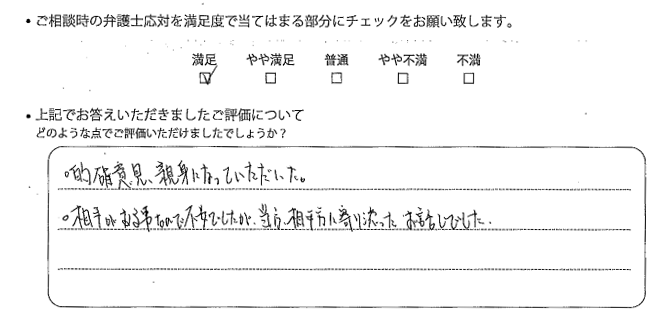 • ご相談時の弁護士応対を満足度で当てはまる部分にチェックをお願い致します。
満足 やや満足 普通 やや不満 不満
☑ □ □ □ □
• 上記でお答えいただきましたご評価について
どのような点でご評価いただけましたでしょうか？
○的確意見、親身になっていただいた。
○相手がある事なので不安でしたが、当方、相手方に寄り添った お話しでした.